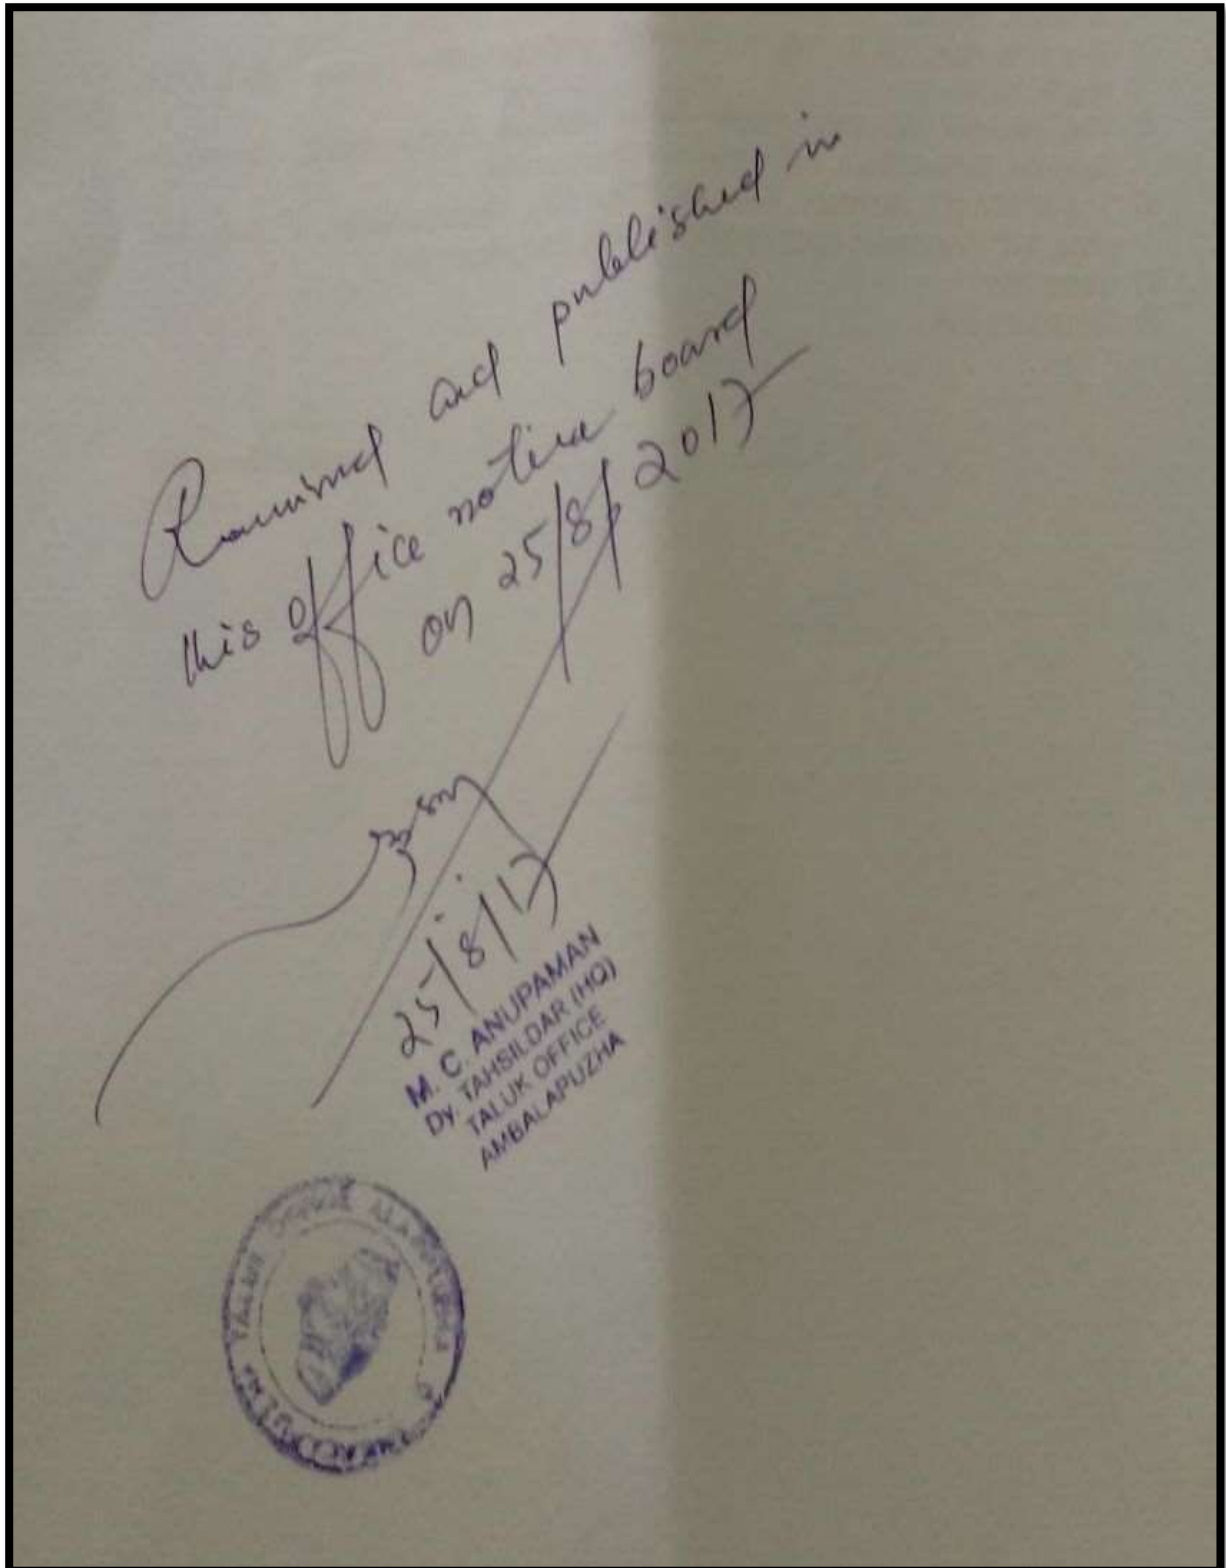 Received and published in
this office notice board
on 25/8/2017
25/8/17
M. C. ANUPAMAN
Dy. TAHSILDAR (HQ)
TALUK OFFICE
AMBALAPUZHA
TALUK OFFICE